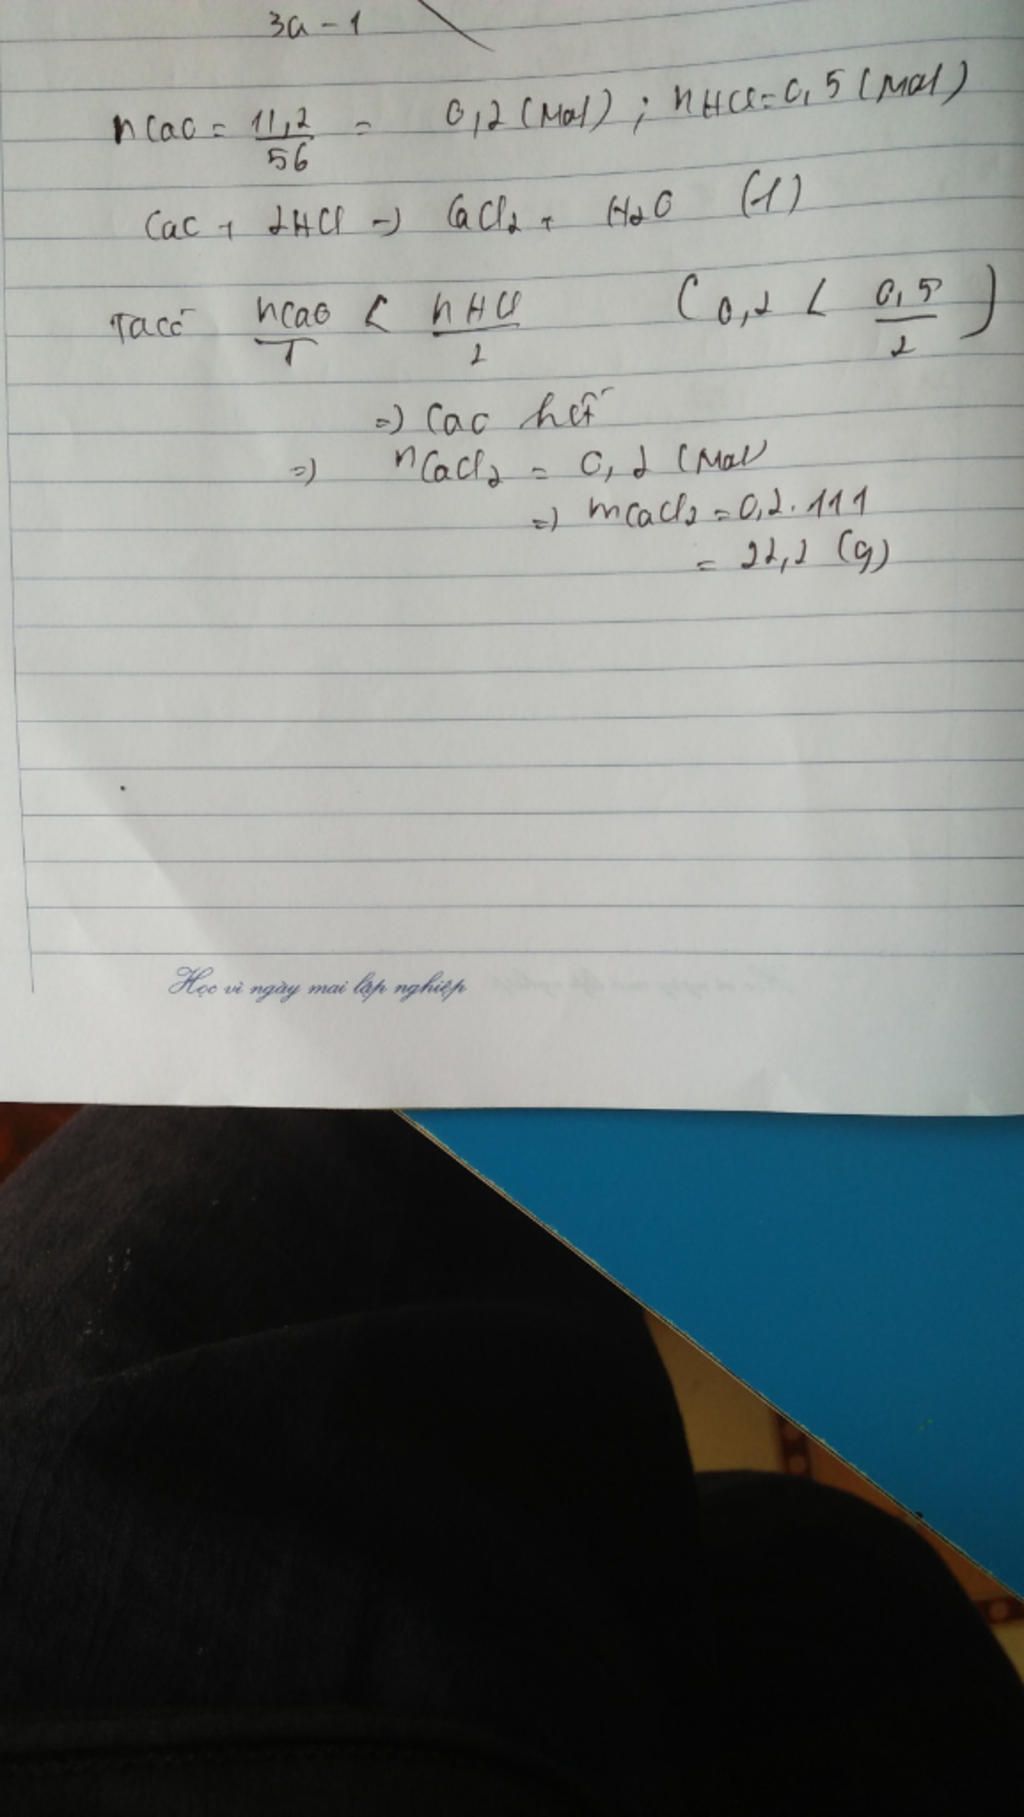 3a - 1
nCaO = 11,2/56 = 0,2 (mol) ; nHCl = 0,5 (mol)
CaO + 2HCl => CaCl2 + H2O (1)
Ta có nCaO/1 < nHCl/2 (0,2 < 0,5/2)
=> CaO hết
=> nCaCl2 = 0,2 (mol)
=> mCaCl2 = 0,2.111
= 22,2 (g)
Học vì ngày mai lập nghiệp